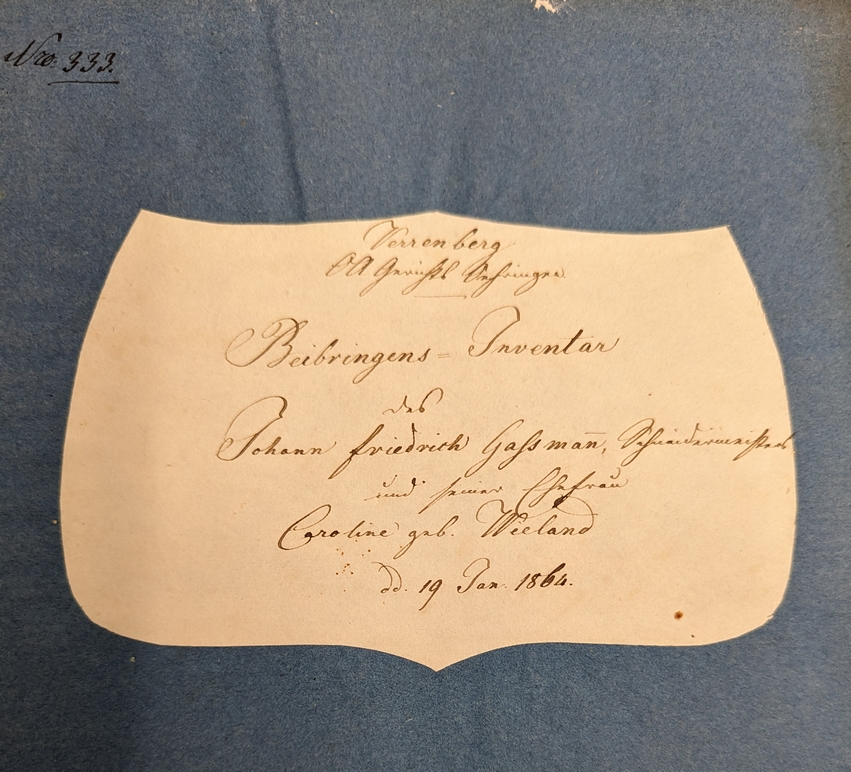 Nro. 333.
Verrenberg
OA Gerichts Oehringen
Beibringens = Inventar
des
Johann Friedrich Gaßman̅, Schneidermeisters
und seiner Ehefrau
Caroline geb. Wieland
dd. 19 Jan. 1864.